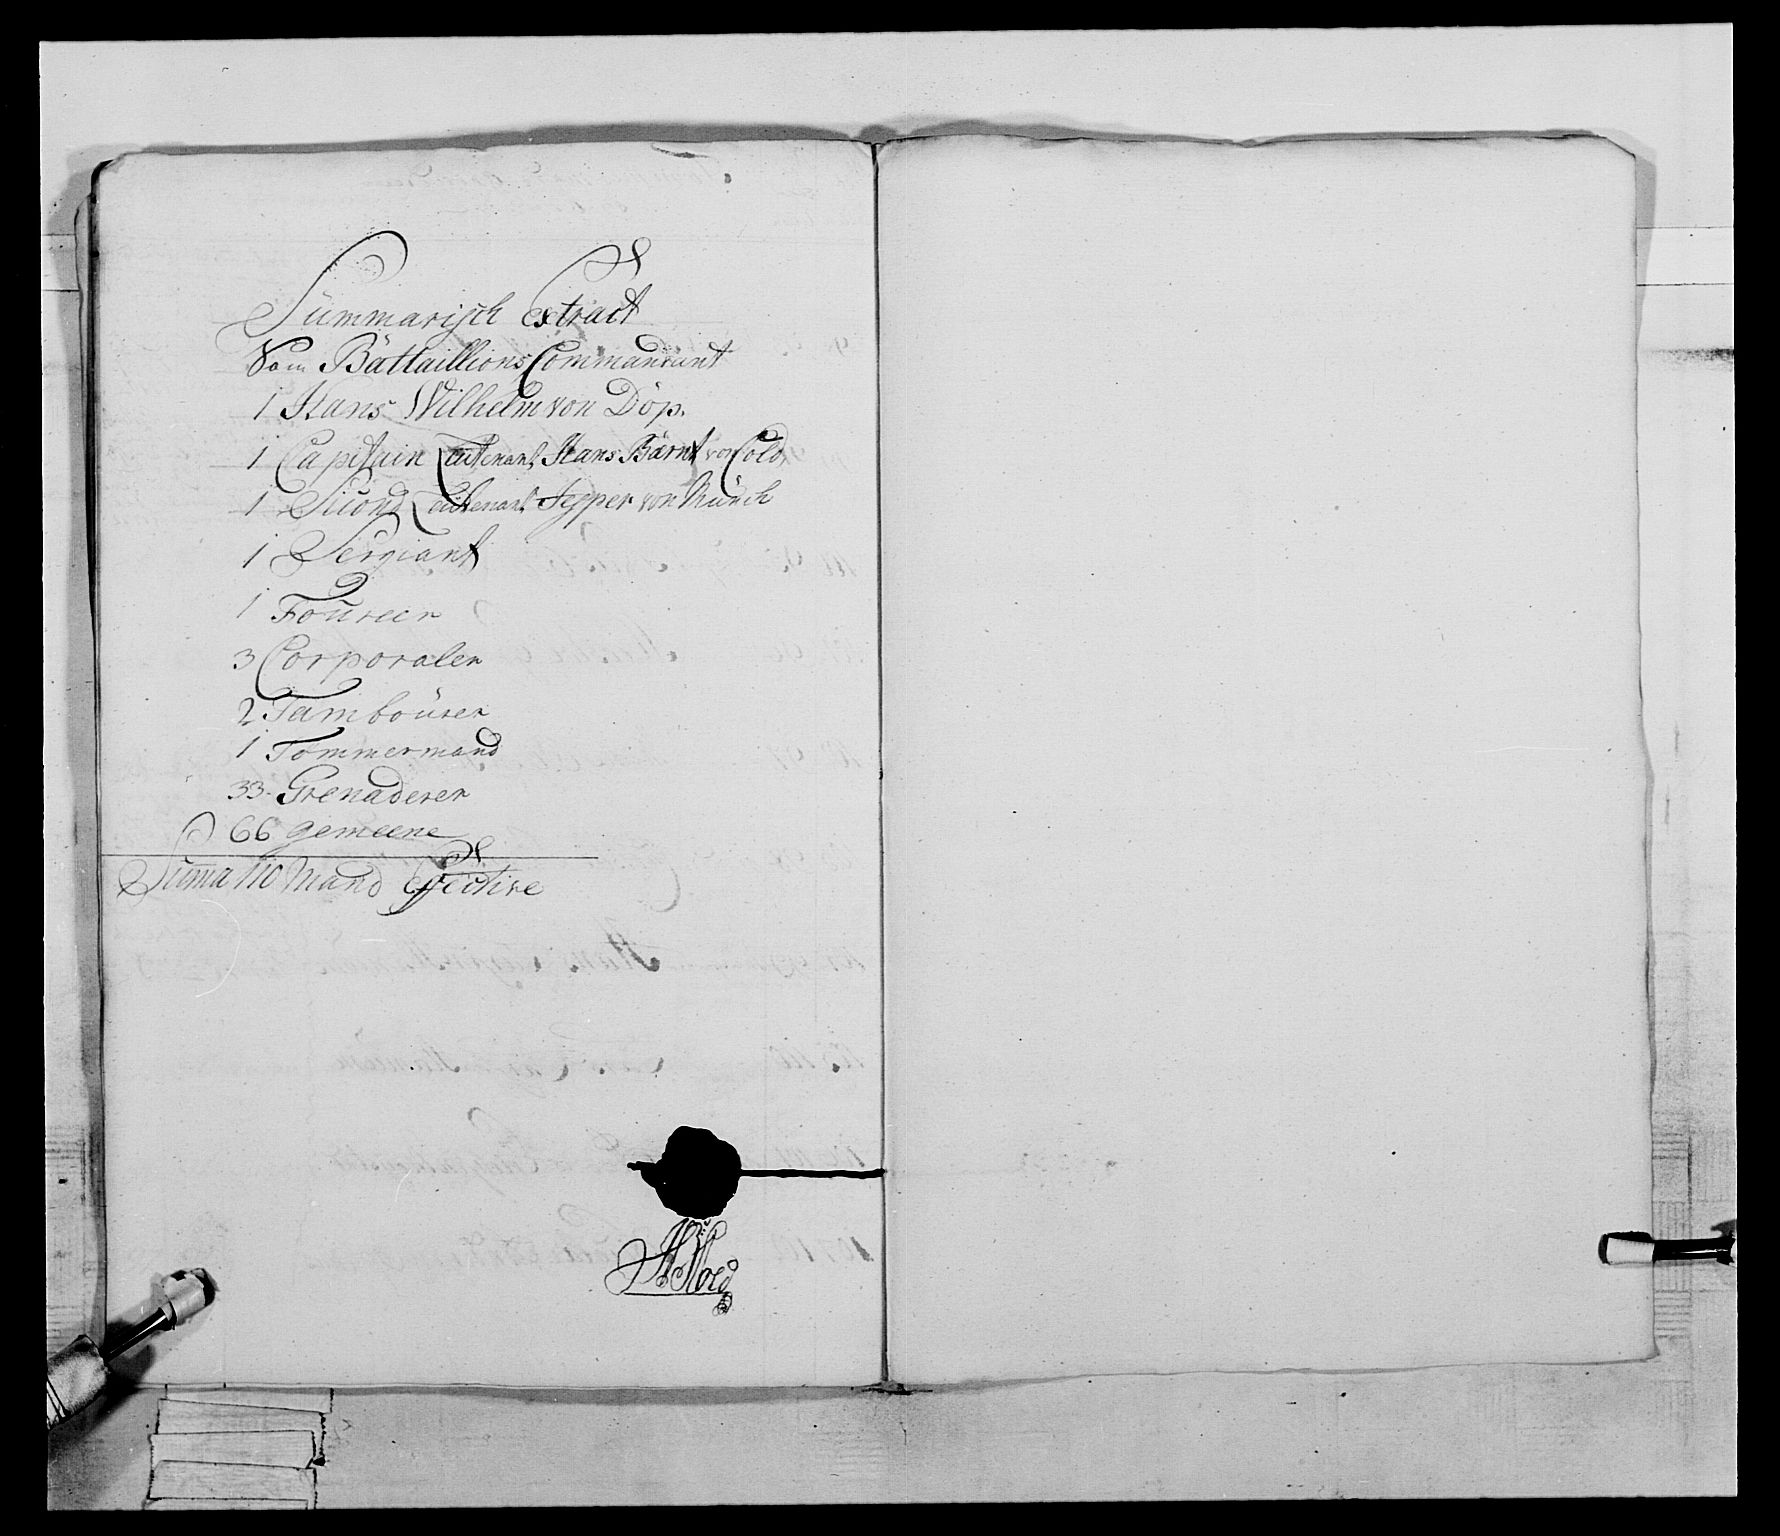 Summarisch Extract
Vom Battaillions Commandant
1 Hans Wilhelm von Döp.
1 Capitain Leutenant Hans Barnt von Cold
1 Second Leutenant Jepper von Munch
1 Sergiant
1 Foureer
3 Corporaler
2 Tambourer
1 Tømmermand
33 Grenaderer
66 gemeene
Suma 110 Mand Effective